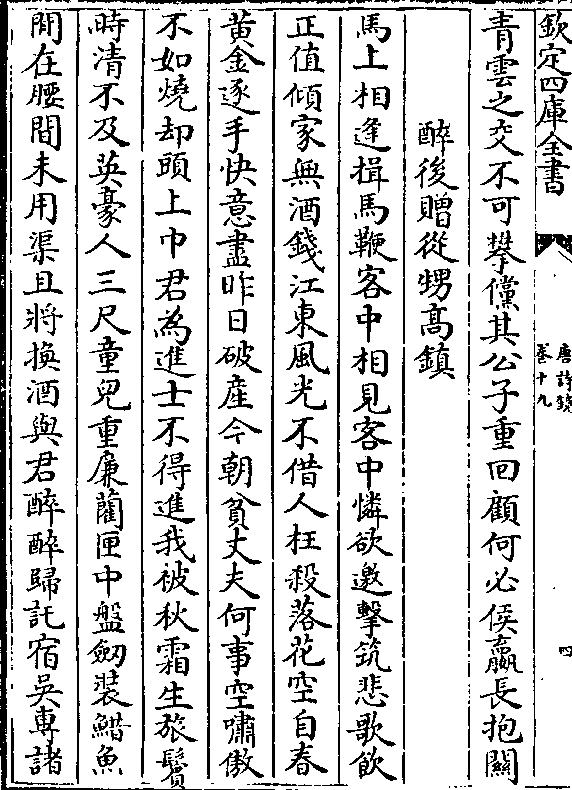 欽定四庫全書
唐詩鏡
卷十九
四
青雲之交不可攀儻其公子重回顧何必侯嬴長抱關
醉後贈從甥高鎮
馬上相逢揖馬鞭客中相見客中憐欲邀擊筑悲歌飲
正值傾家無酒錢江東風光不借人枉殺落花空自春
黄金逐手快意盡昨日破產今朝貧丈夫何事空嘯傲
不如燒却頭上巾君為進士不得進我被秋霜生旅鬢
時清不及英豪人三尺童兒重廉藺匣中盤劒裝䱜魚
閒在腰間未用渠且將換酒與君醉醉歸託宿吳專諸